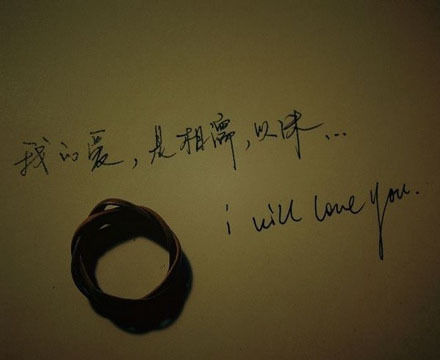 我的爱,是相濡,以沫...
i will love you.